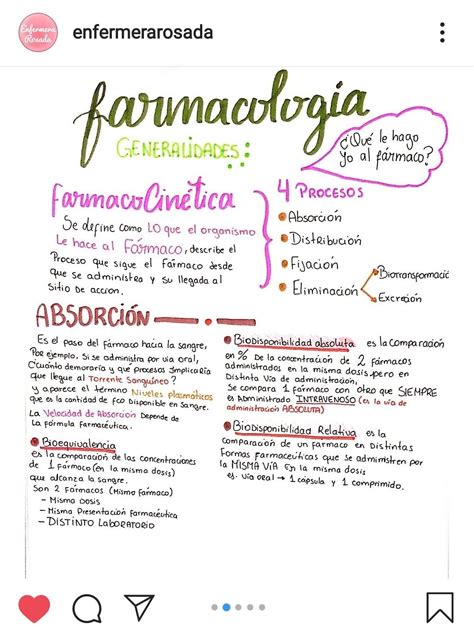 Enfermera
Rosada
enfermerarosada
farmacología
GENERALIDADES:
¿Qué le hago
yo al fármaco?
farmacoCinética
Se define como LO que el organismo
Le hace al Fármaco, describe el
Proceso que sigue el Fármaco desde
que se administra y su llegada al
Sitio de accion.
4 PROCESOS
Absorción
Distribución
Fijación
Eliminación
Biotransformació
Excreción
ABSORCIÓN
Es el paso del fármaco hacia la sangre,
Por ejemplo. Si se administra por via oral,
C'uanto demoraría y qué procesos implicaría
que llegue al Torrente Sanguíneo?
y aparece el término Niveles plasmáticos
que es la cantidad de fco Disponible en Sangre.
La Velocidad de Absorción Depende de
La fórmula farmacéutica.
Bioequivalencia
es la comparación de las concentraciones
de 1 Fármaco (en la misma dosis)
que alcanza la sangre.
Son 2 Fármacos (Mismo Fármaco)
- Misma Dosis
- Misma Presentación Farmacéutica
- DISTINTO LABORATORIO
Biodisponibilidad absoluta es la comparación
en % De la concentración de 2 fármacos
administrados en la misma dosis, pero en
Distinta Vía de administración,
Se compara 1 fármaco con otro que SIEMPRE
es administrado INTRAVENOSO (es la vía de
administracion ABSOLUTA)
Biodisponibilidad Relativa es la
comparación de un fármaco en Distintas
Formas farmaceúticas que se administren por
la MISMA VíA En la misma dosis
ej. vía oral → 1 cápsula y 1 comprimido.